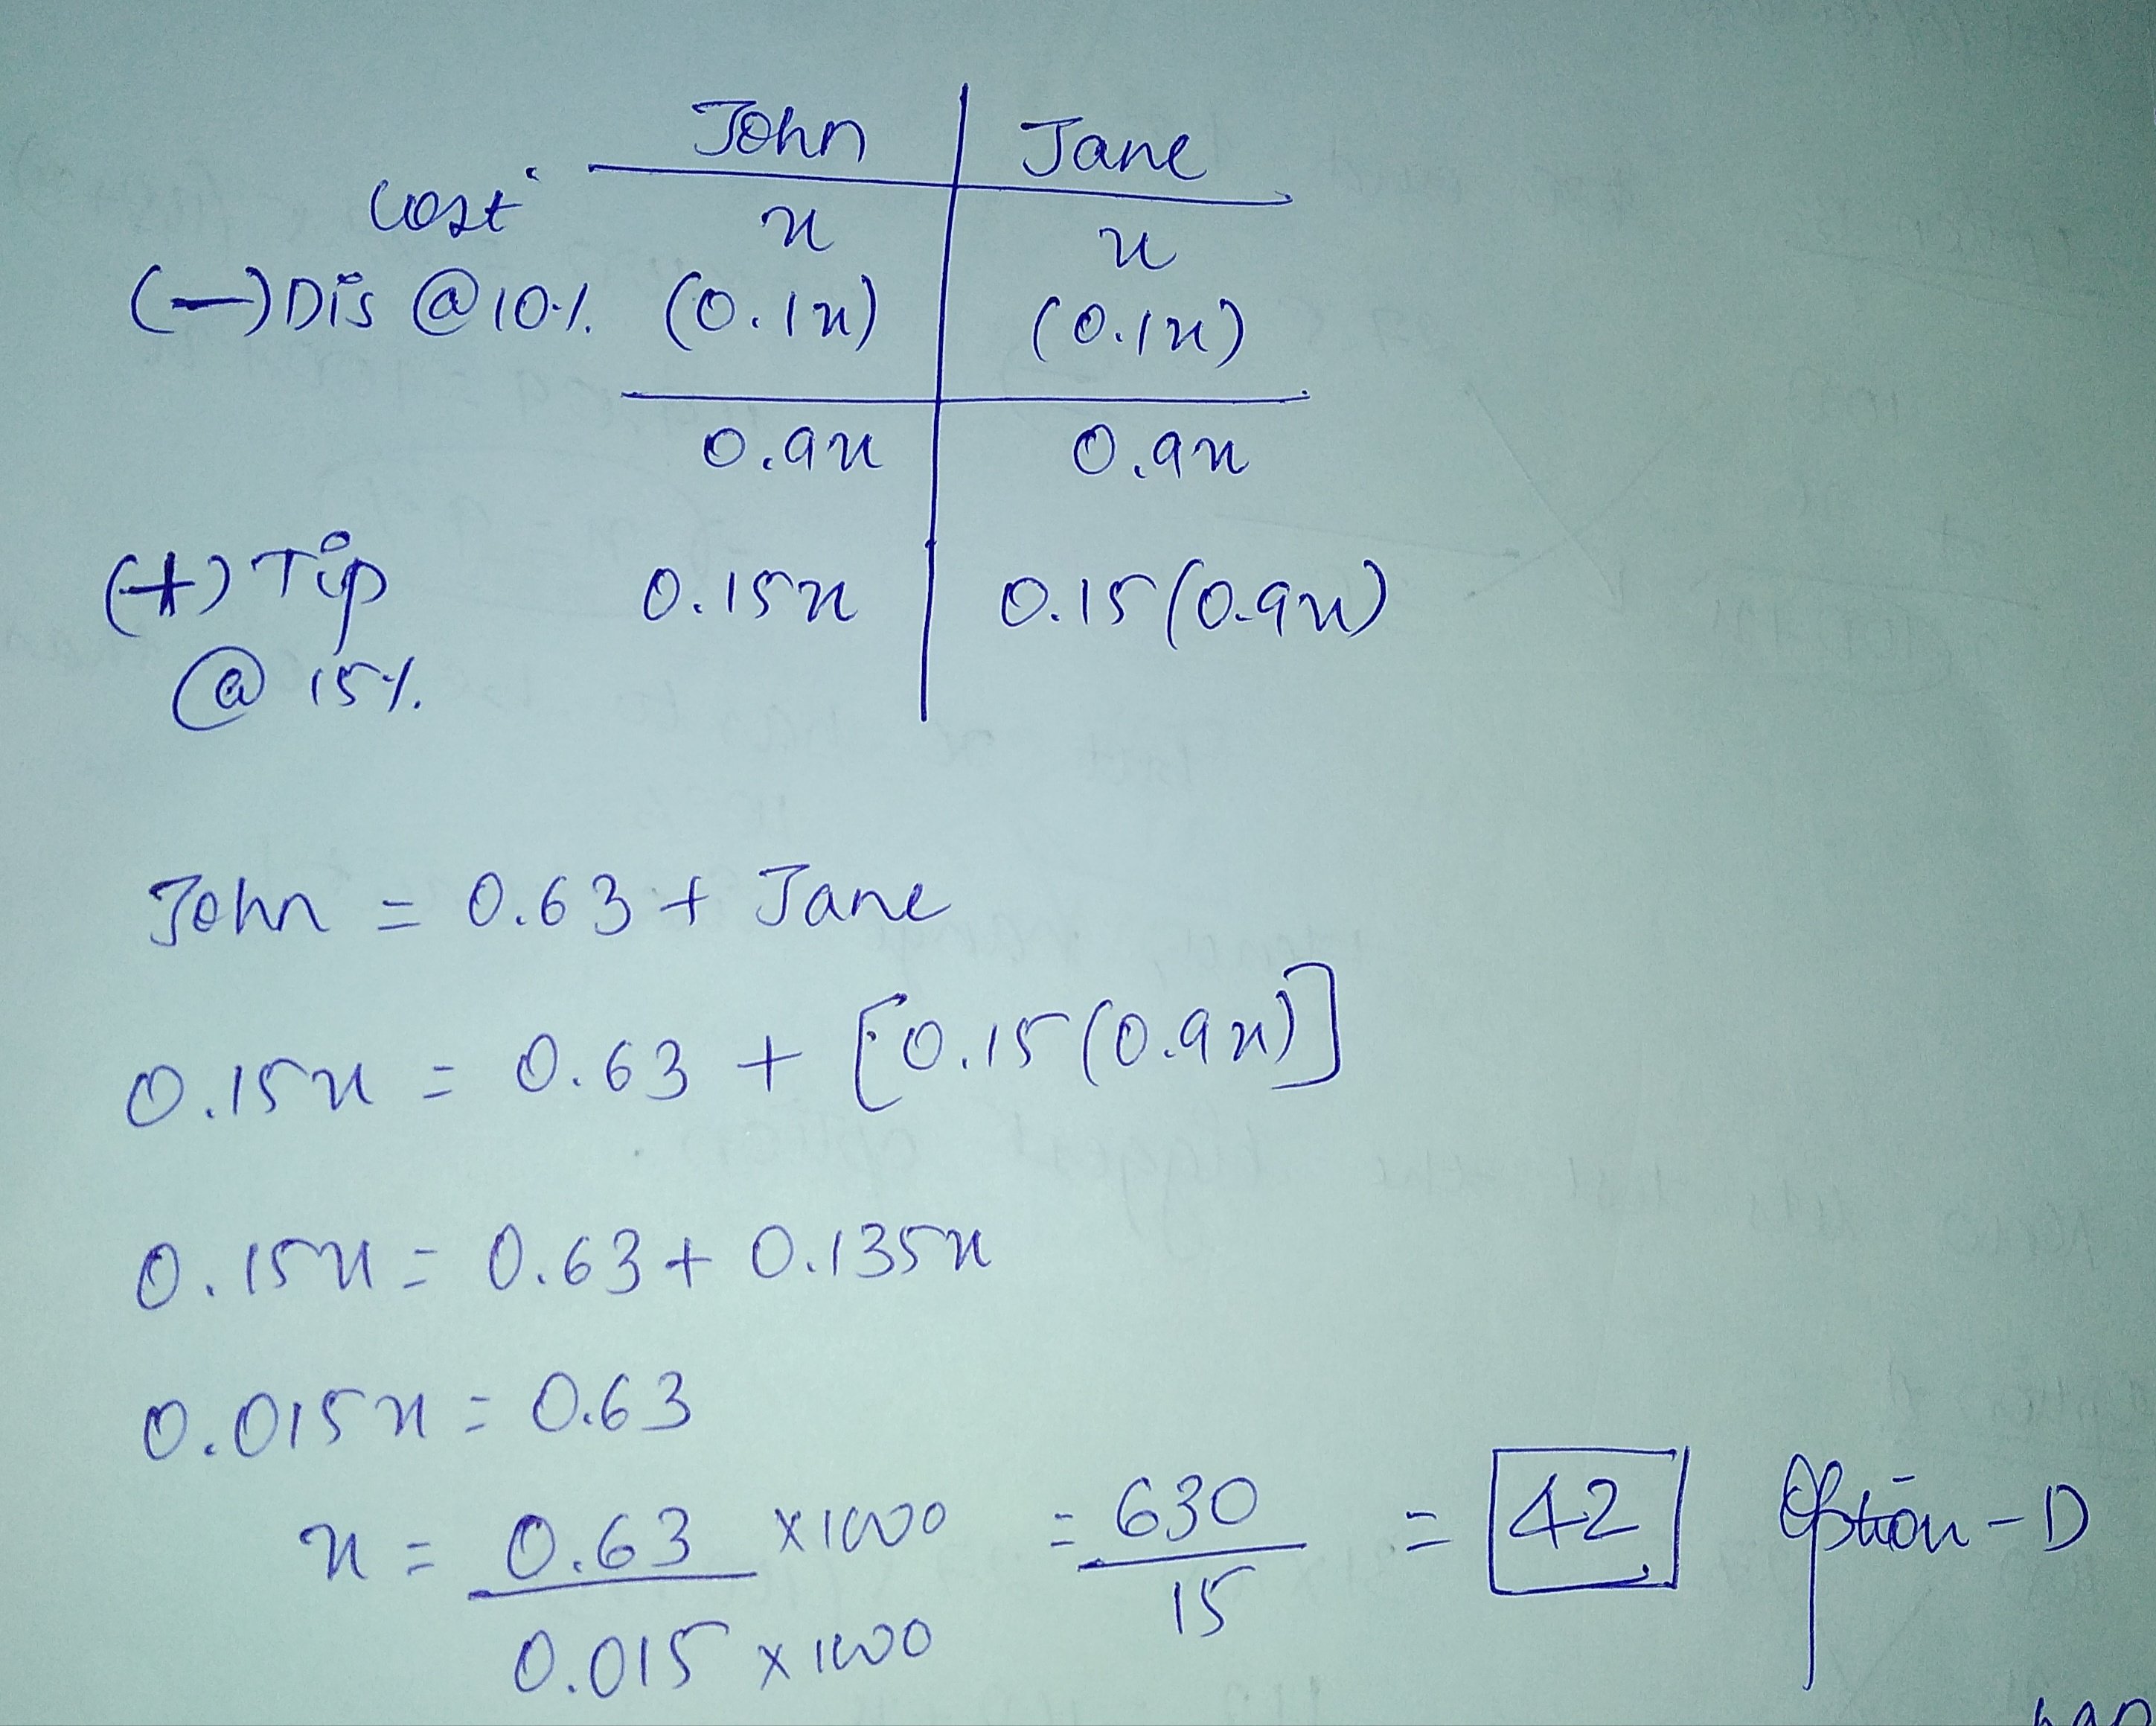 John Jane
Cost x x
(-) Dis @ 10% (0.1x) (0.1x)
0.9x 0.9x
(+) Tip 0.15x 0.15(0.9x)
@ 15%
John = 0.63 + Jane
0.15x = 0.63 + [0.15(0.9x)]
0.15x = 0.63 + 0.135x
0.015x = 0.63
x = 0.63 ×1000 = 630 = 42 Option - D
0.015 ×1000 15